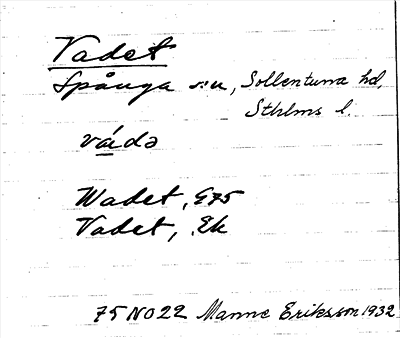 Vadet
Spånga sn, Sollentuna hd,
Sthlms l.
vádə
Wadet, E75
Vadet, Ek
75 NO22 Manne Eriksson 1932